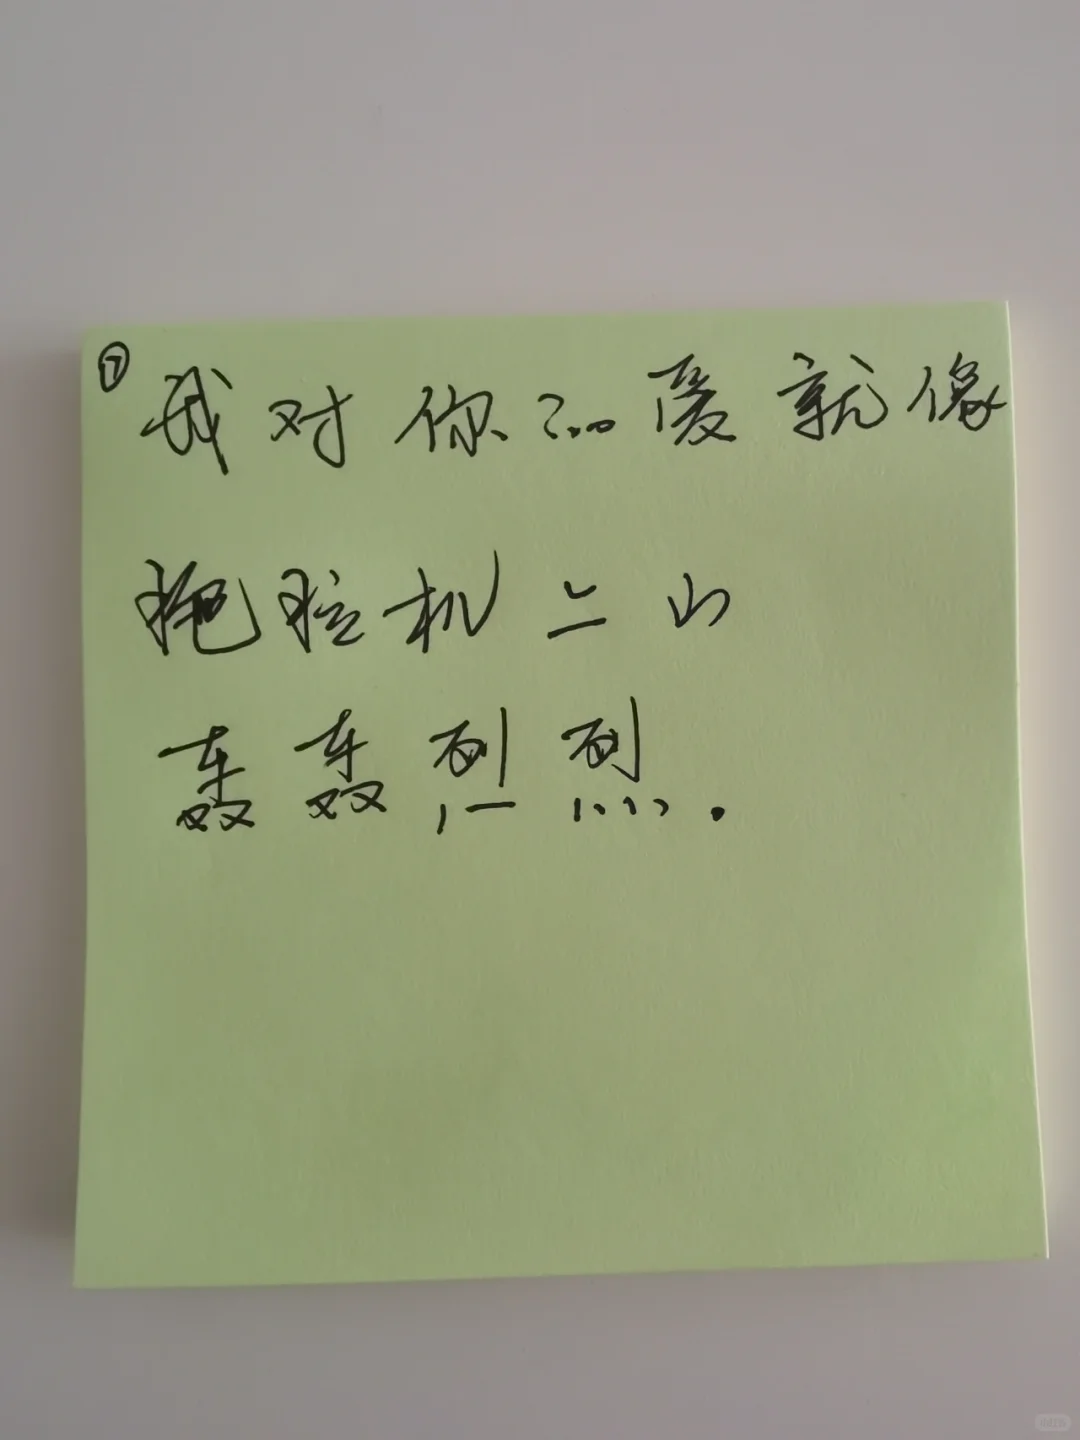 ⑦ 我对你的爱就像
拖拉机上山
轰轰烈烈.